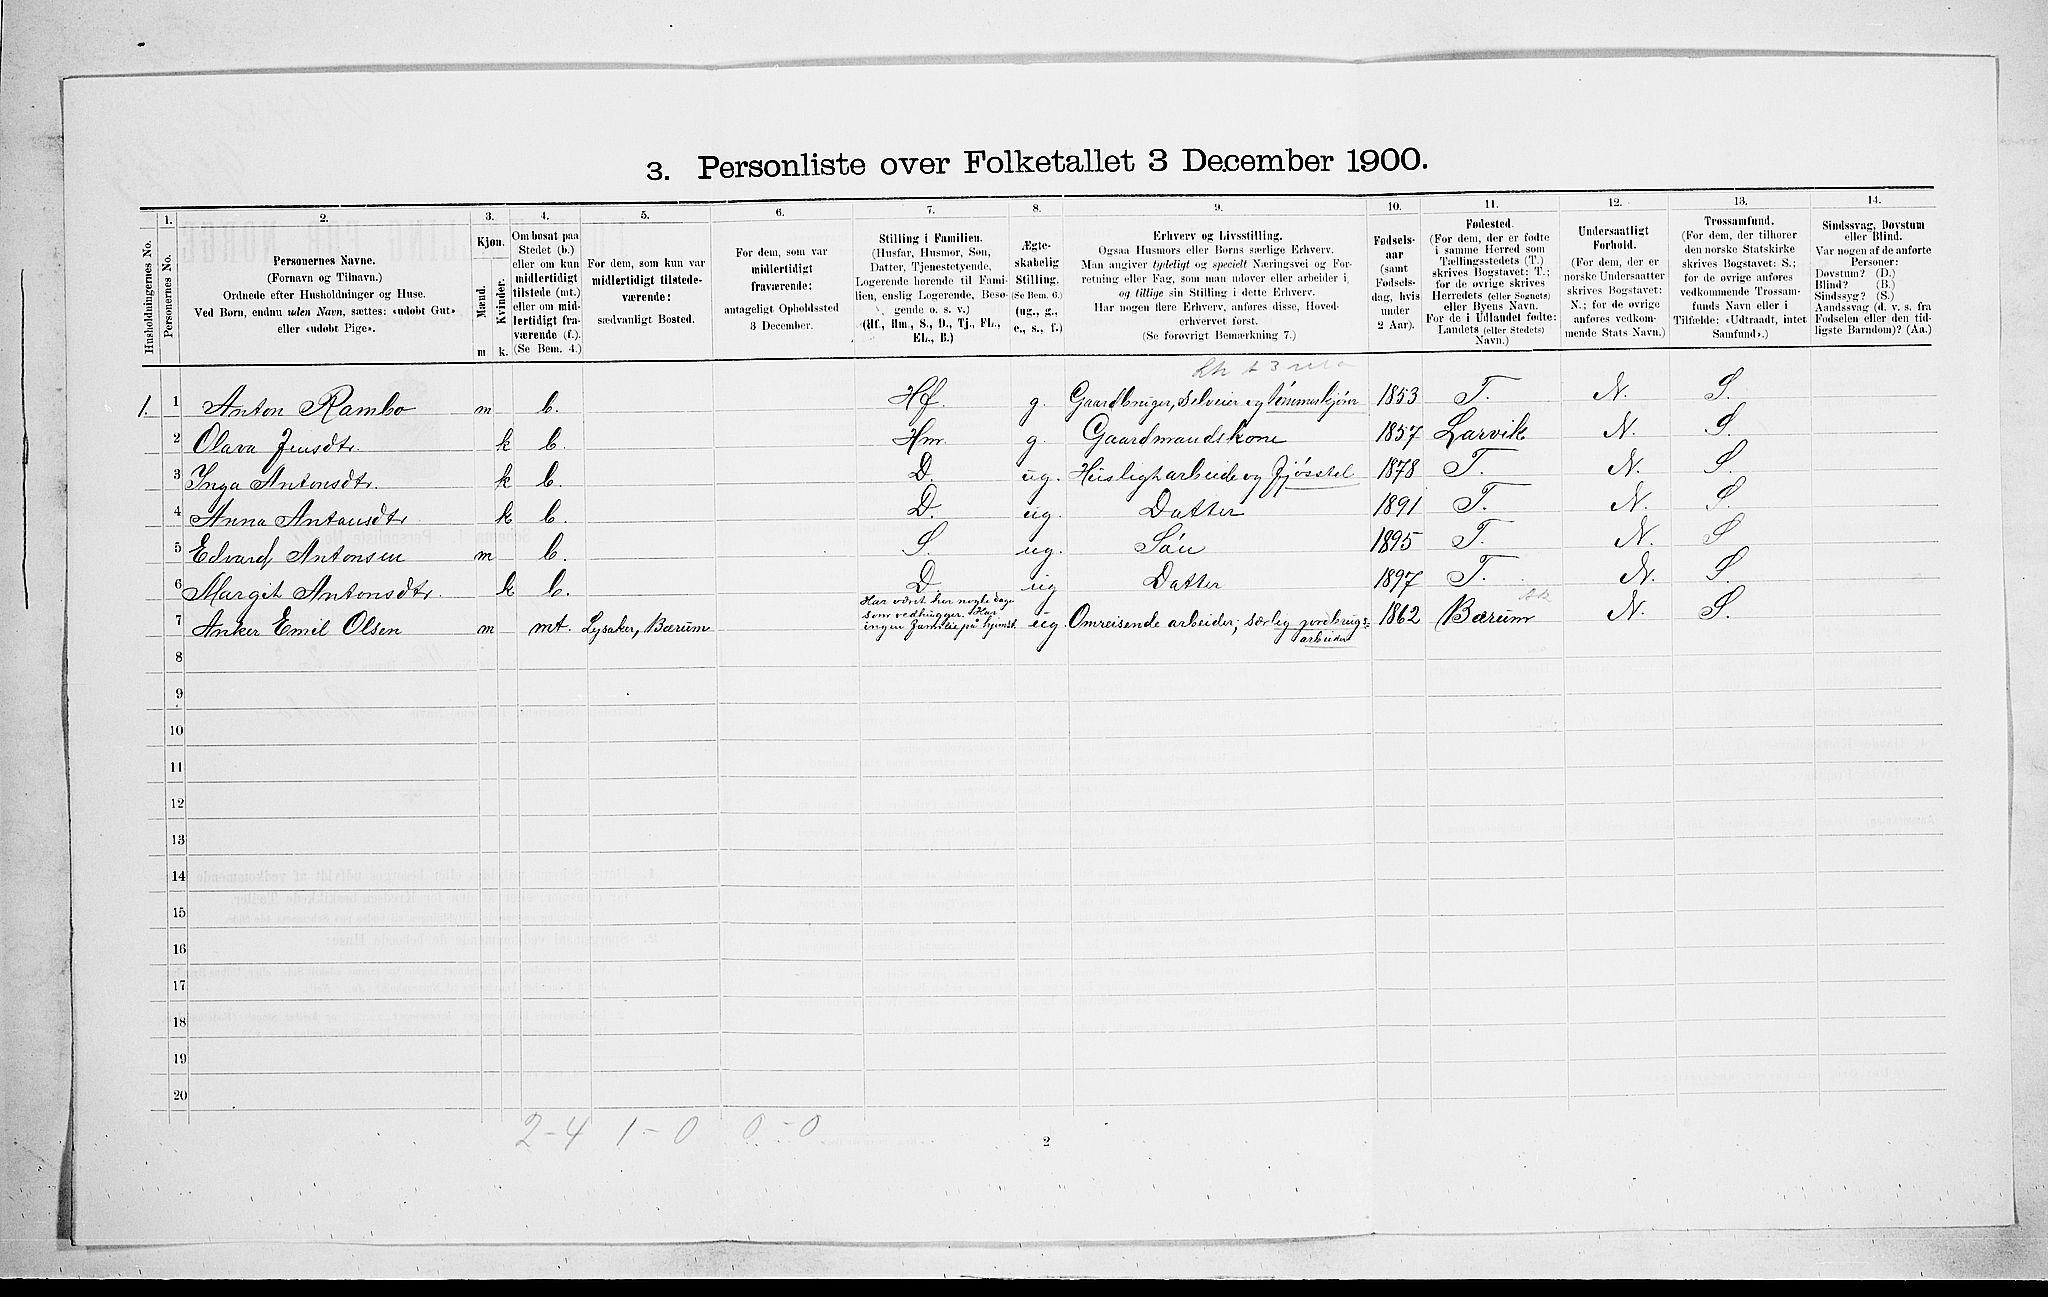 3. Personliste over Folketallet 3 December 1900.
1. 2. 3. 4. 5. 6. 7. 8. 9. 10. 11. 12. 13. 14.
Husholdningernes No.
Personernes No.
Personernes Navne.
(Fornavn og Tilnavn.)
Ordnede efter Husholdninger og Huse.
Ved Børn, endnu uden Navn, sættes: «udøbt Gut»
eller «udøbt Pige».
Kjøn.
Mænd.
Kvinder.
m k.
Om bosat paa
Stedet (b.)
eller om kun
midlertidigt
tilstede (mt.)
eller om mid-
lertidigt fra-
værende (f.).
(Se Bem. 4.)
For dem, som kun var
midlertidigt tilstede-
værende:
sædvanligt Bosted.
For dem, som var
midlertidigt
fraværende:
antageligt Opholdssted
3 December.
Stilling i Familien.
(Husfar, Husmor, Søn,
Datter, Tjenestetyende,
Logerende hørende til Fami-
lien, enslig Logerende, Besø-
gende o. s. v.)
(Hf., Hm., S., D., Tj., FL.,
EL., B.)
Ægte-
skabelig
Stilling.
(Se Bem. 6.)
(ug., g.,
e., s., f.)
Erhverv og Livsstilling.
Ogsaa Husmors eller Børns særlige Erhverv.
Man angiver tydeligt og specielt Næringsvei og For-
retning eller Fag, som man udøver eller arbeider i,
og tillige sin Stilling i dette Erhverv.
Har nogen flere Erhverv, anføres disse, Hoved-
erhvervet først.
(Se forøvrigt Bemærkning 7.)
Fødsels-
aar
(samt
Fødsels-
dag, hvis
under
2 Aar).
Fødested.
(For dem, der er fødte
i samme Herred som
Tællingsstedets (T.)
skrives Bogstavet: T.;
for de øvrige skrives
Herredets (eller Sognets)
eller Byens Navn.
For de i Udlandet fødte:
Landets (eller Stedets)
Navn.)
Undersaatligt
Forhold.
(For dem, der er
norske Undersaatter
skrives Bogstavet:
N.; for de øvrige
anføres vedkom-
mende Stats Navn.)
Trossamfund.
(For dem, der tilhører
den norske Statskirke
skrives Bogstavet: S.;
for de øvrige anføres
vedkommende Trossam-
funds Navn eller i
Tilfælde: «Udtraadt, intet
Samfund».)
Sindssvag, Døvstum
eller Blind.
Var nogen af de anførte
Personer:
Døvstum? (D.)
Blind? (B.)
Sindssyg? (S.)
Aandssvag (d. v. s. fra
Fødselen eller den tid-
ligste Barndom)? (Aa.)
1. 1 Anton Rambo m b. Hf. g. Gaardbruger, Selveier og tømmerkjørir 1853 T. N. S.
2 Olava Jensdtr. k b. Hm g. Gaardmandskone 1857 Larvik N. S.
3 Inga Antonsdtr. k b. D. ug. Husligt arbeide og fjøsstel 1878 T. N. S.
4 Anna Antonsdtr. k b. D. ug. Datter 1891 T. N. S.
5 Edvard Antonsen m b. S. ug. Søn 1895 T. N. S
6 Margit Antonsdtr. k b. D ug Datter 1897 T. N. S.
7 Anker Emil Olsen m mt. Lysaker, Bærum Har været her nogle dage
som vedhugger. Har
ingen familie på hjemst. ug. Omreisende arbeider; særlig jordbrugs-
arbeider 1862 Bærum N. S.
8
9
10
11
12
13
14
15
16
17
18
19
20
2-4 1-0 0-0
2